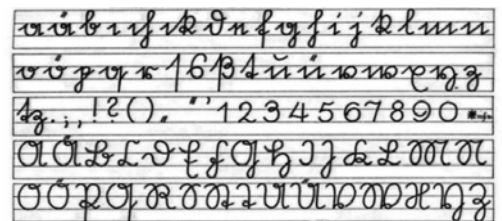 a ä b c ch ck d e f g h i j k l m n
o ö p q r ſ s ß t ŭ ü v w x y z
tz . : , ! ? ( ) „ “ ’ 1 2 3 4 5 6 7 8 9 0
A Ä B C D E F G H I J K L M N
O Ö P Q R S T U Ü V W X Y Z